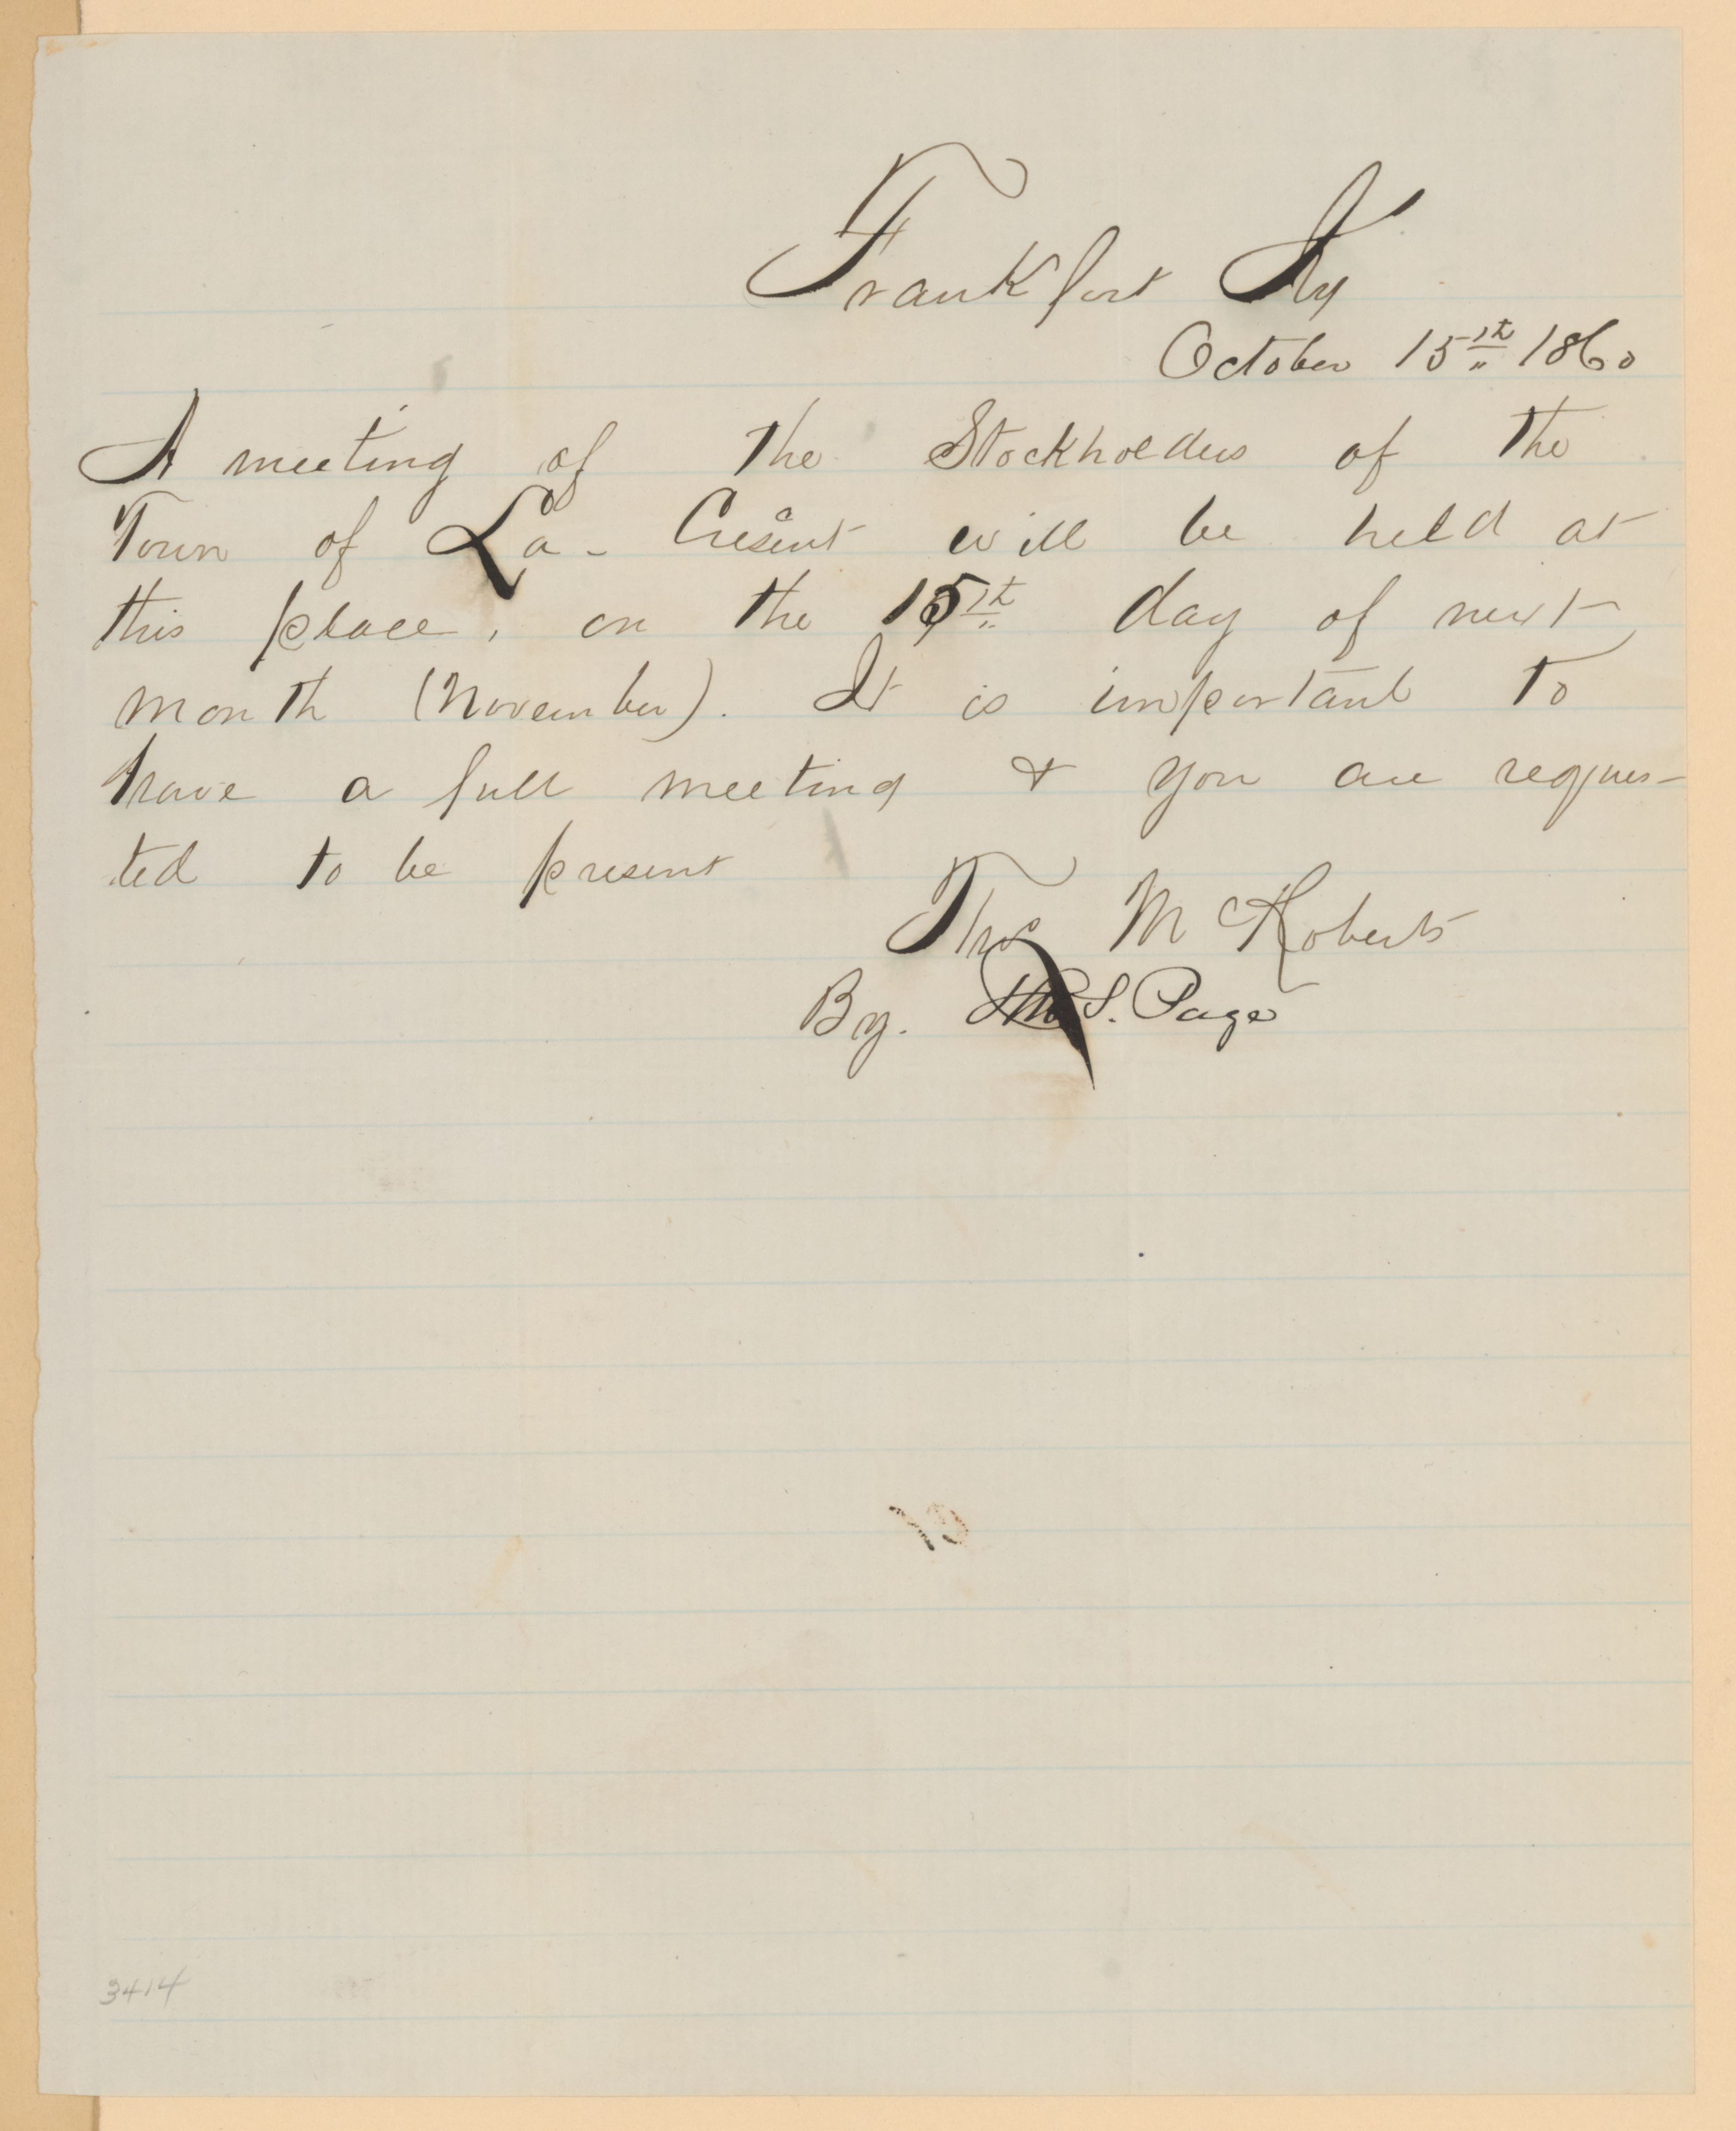 Frankfort Ky
October 15th 1860
A meeting of the Stockholders of the
Town of La-Crescent will be held at
this place, on the 15th day of next
month (November). It is important to
have a full meeting & you are reques-
ted to be present
Thos McRoberts
By. Tho. S. Page
3414